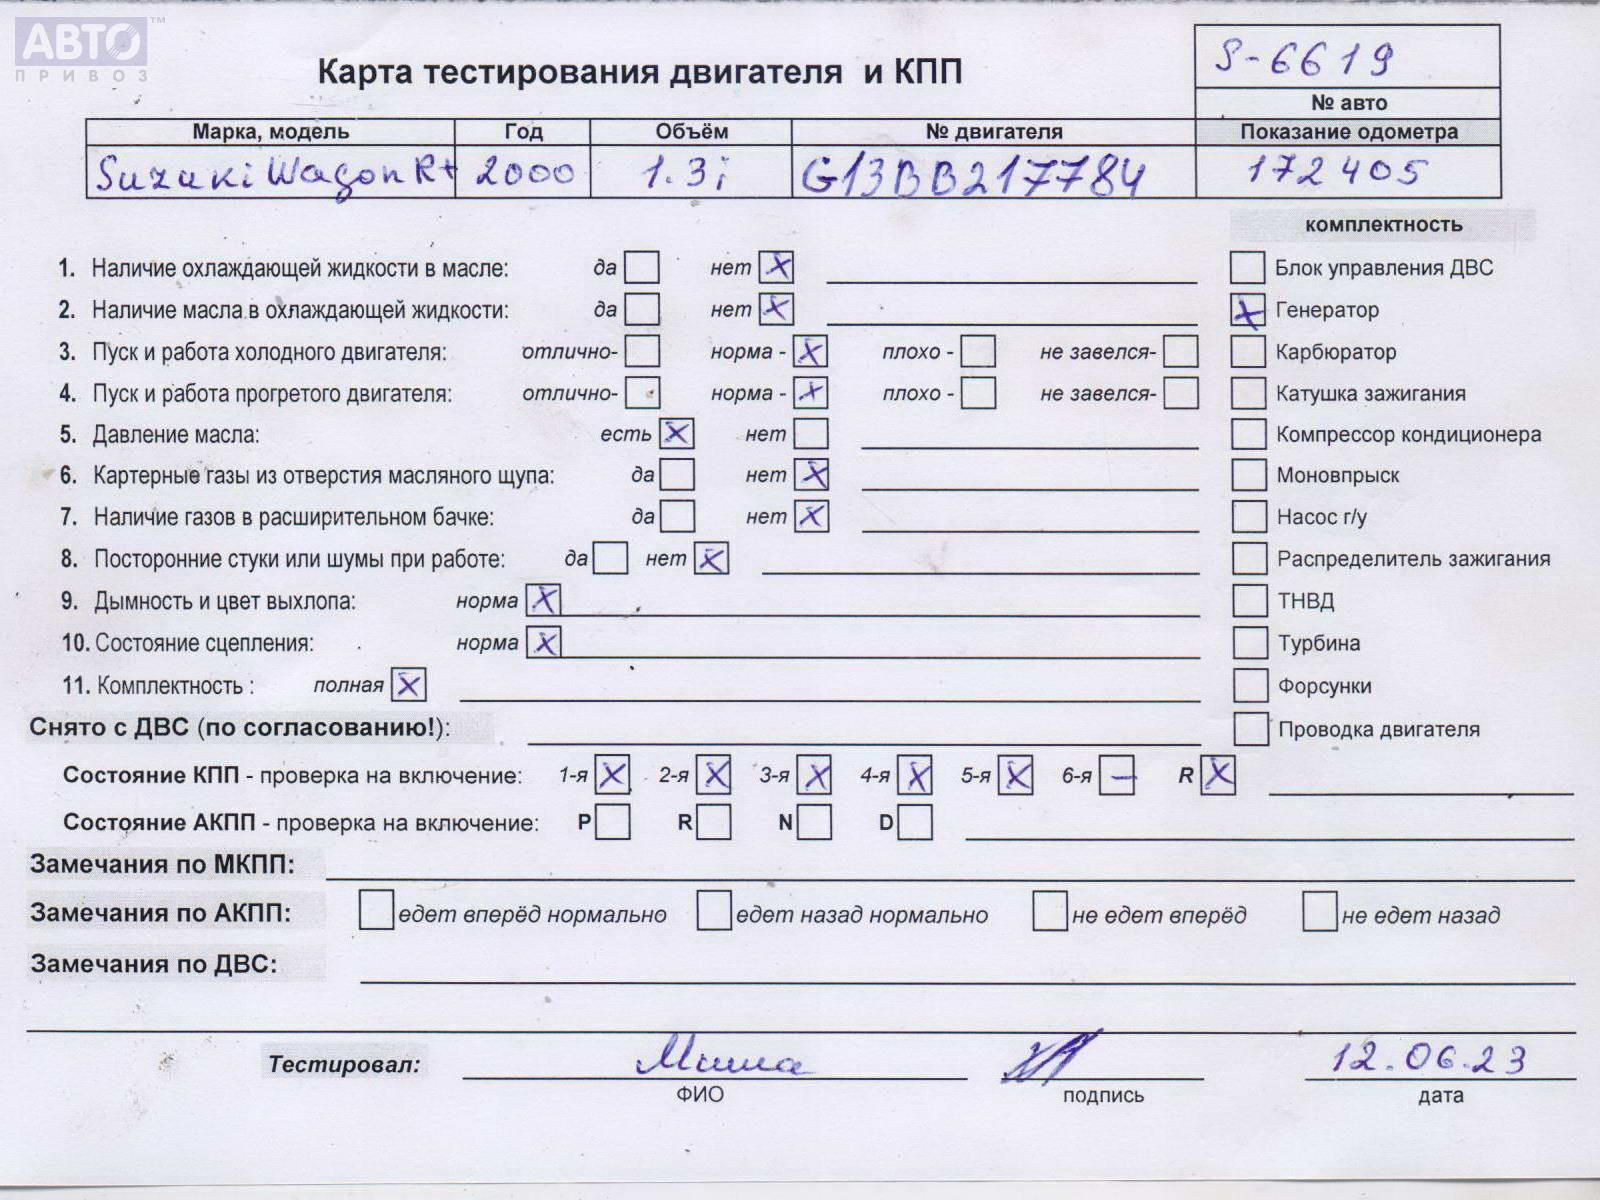 АВТО™
ПРИВОЗ
S-6619
Карта тестирования двигателя и КПП
№ авто
Марка, модель Год Объём № двигателя Показание одометра
Suzuki Wagon R+ 2000 1.3i G13BB217784 172405
комплектность
1. Наличие охлаждающей жидкости в масле: да нет X Блок управления ДВС
2. Наличие масла в охлаждающей жидкости: да нет X X Генератор
3. Пуск и работа холодного двигателя: отлично- норма - X плохо - не завелся- Карбюратор
4. Пуск и работа прогретого двигателя: отлично- норма - X плохо - не завелся- Катушка зажигания
5. Давление масла: есть X нет Компрессор кондиционера
6. Картерные газы из отверстия масляного щупа: да нет X Моновпрыск
7. Наличие газов в расширительном бачке: да нет X Насос г/у
8. Посторонние стуки или шумы при работе: да нет X Распределитель зажигания
9. Дымность и цвет выхлопа: норма X ТНВД
10. Состояние сцепления: норма X Турбина
11. Комплектность : полная X Форсунки
Снято с ДВС (по согласованию!): Проводка двигателя
Состояние КПП - проверка на включение: 1-я X 2-я X 3-я X 4-я X 5-я X 6-я — R X
Состояние АКПП - проверка на включение: P R N D
Замечания по МКПП:
Замечания по АКПП: едет вперёд нормально едет назад нормально не едет вперёд не едет назад
Замечания по ДВС:
Тестировал: Миша 12.06.23
ФИО подпись дата